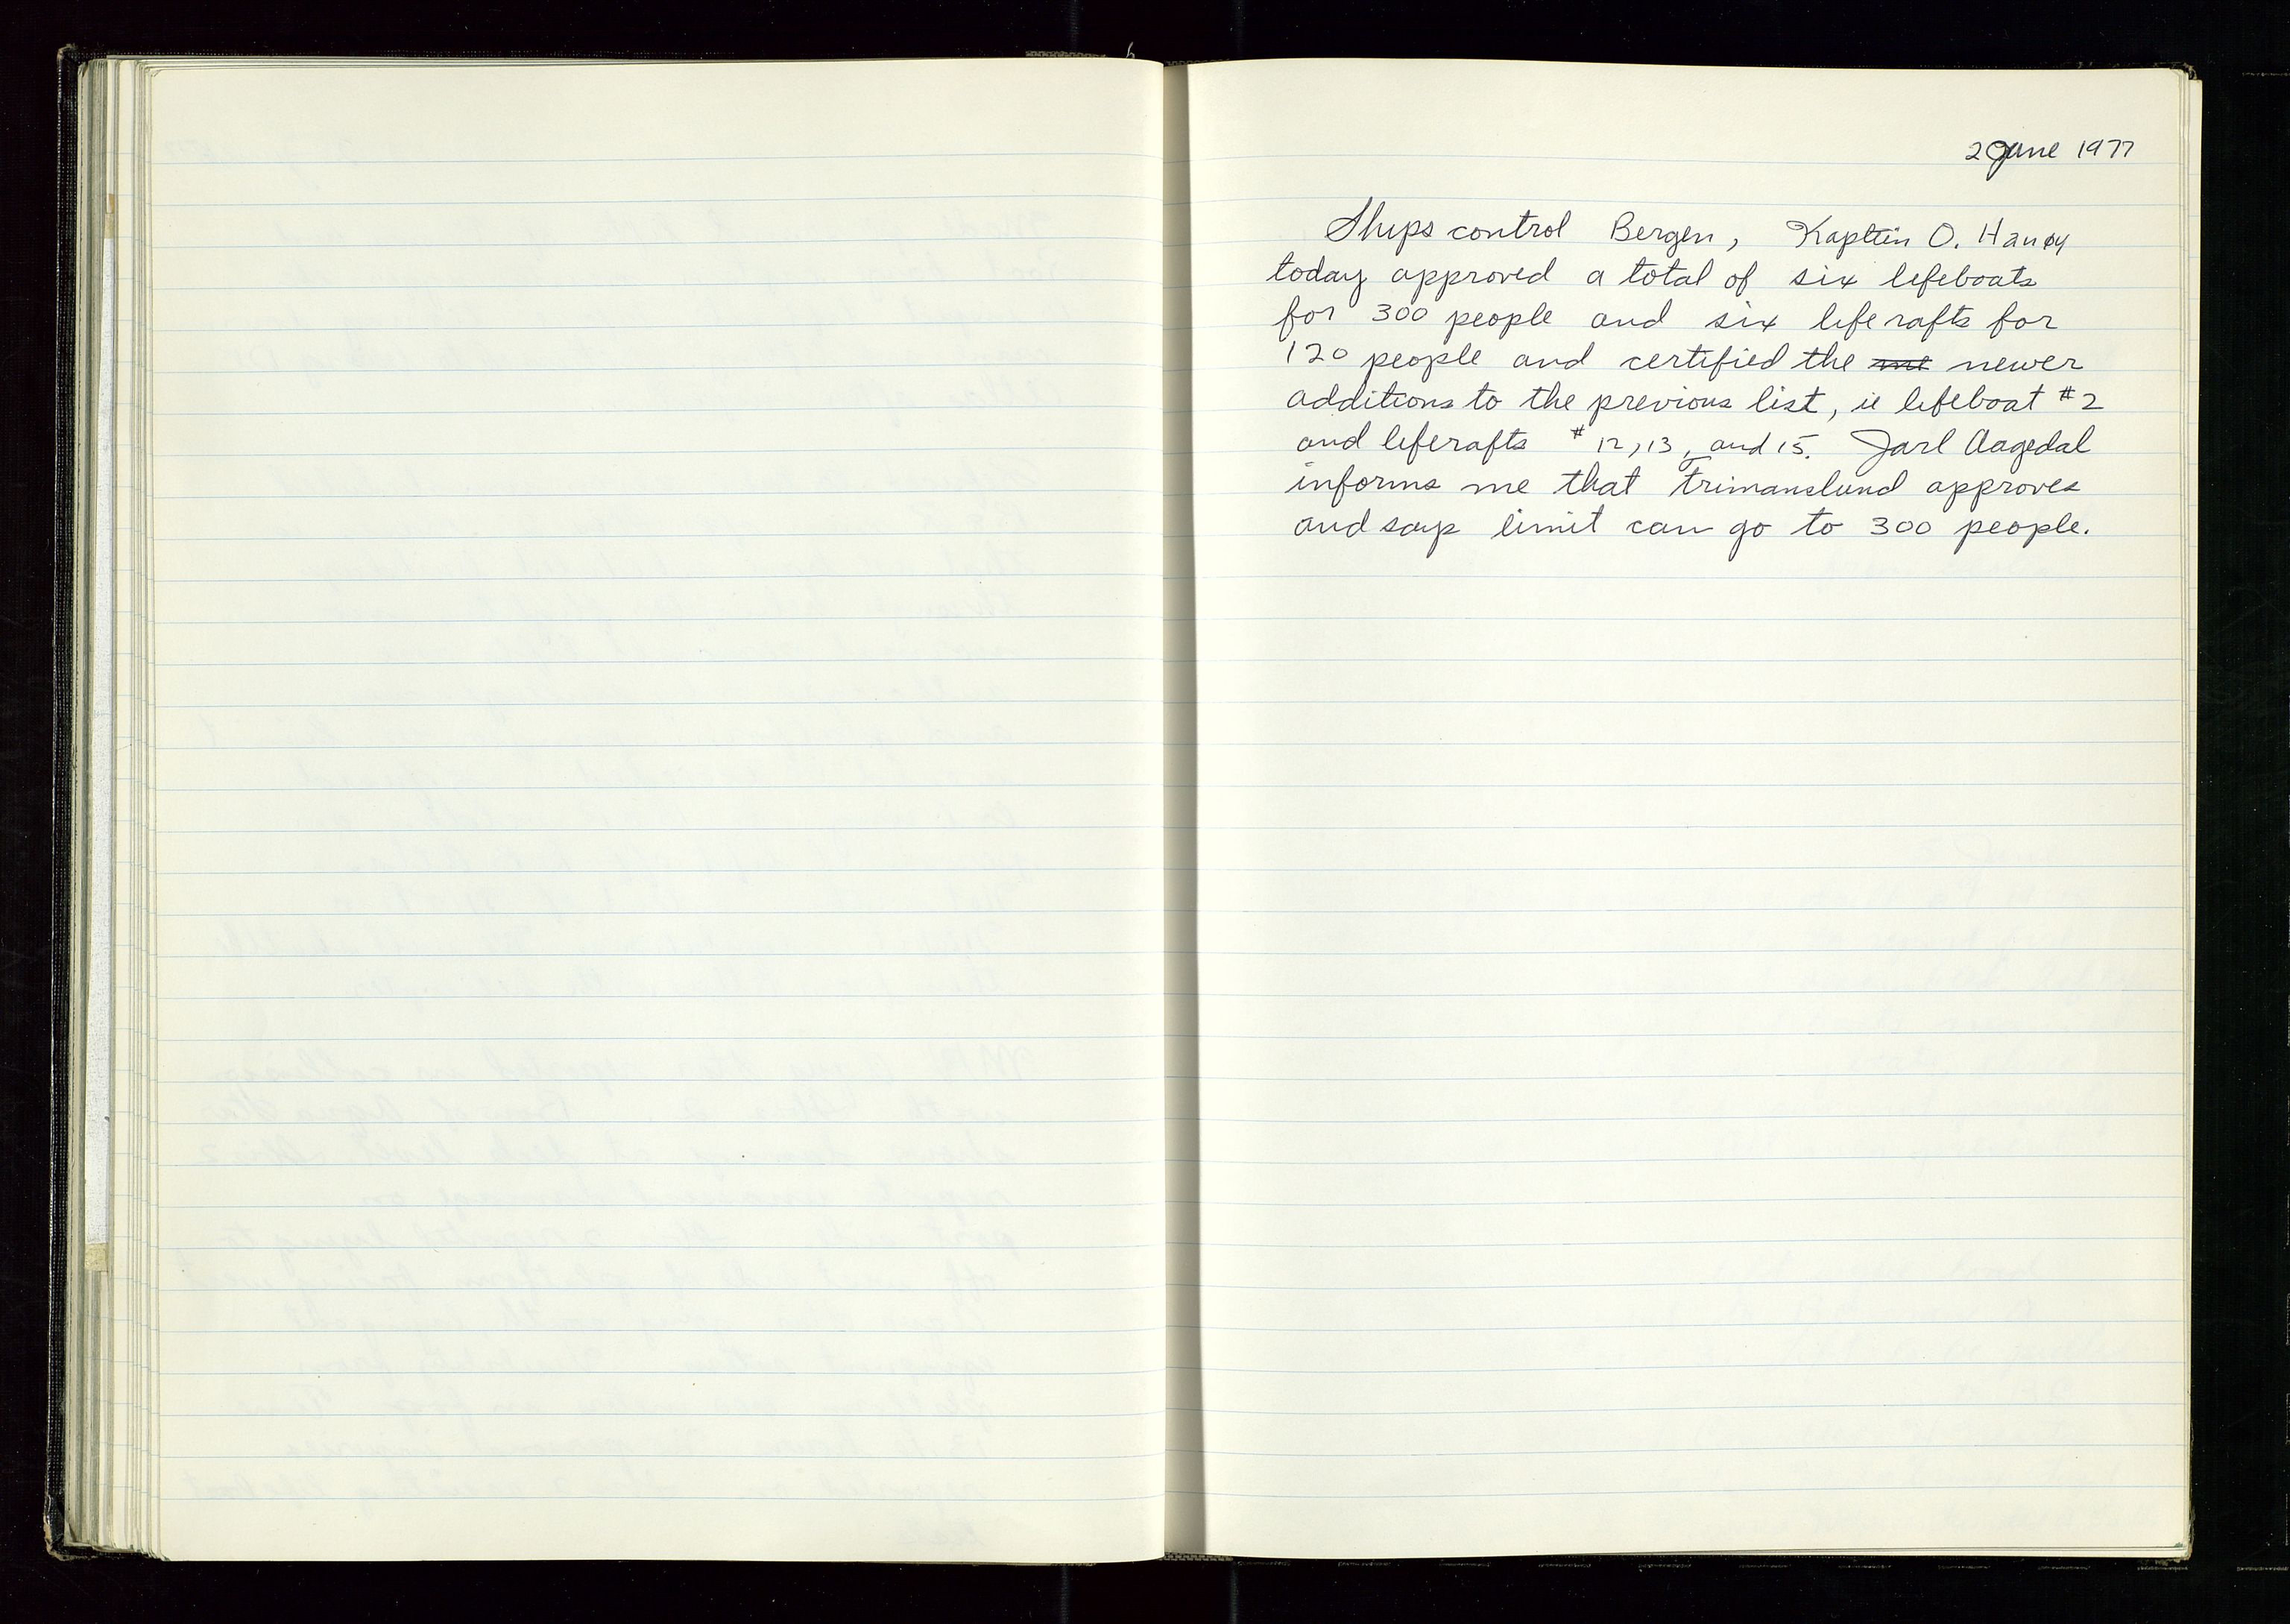 2 June 1977
Ships control Bergen, Kaptein O. Hanøy
today approved a total of six lifeboats
for 300 people and six liferafts for
120 people and certified the newer
additions to the previous list, ie lifeboat #2
and liferafts #12, 13, and 15. Jarl Aagedal
informs me that Trimanslund approves
and says limit can go to 300 people.